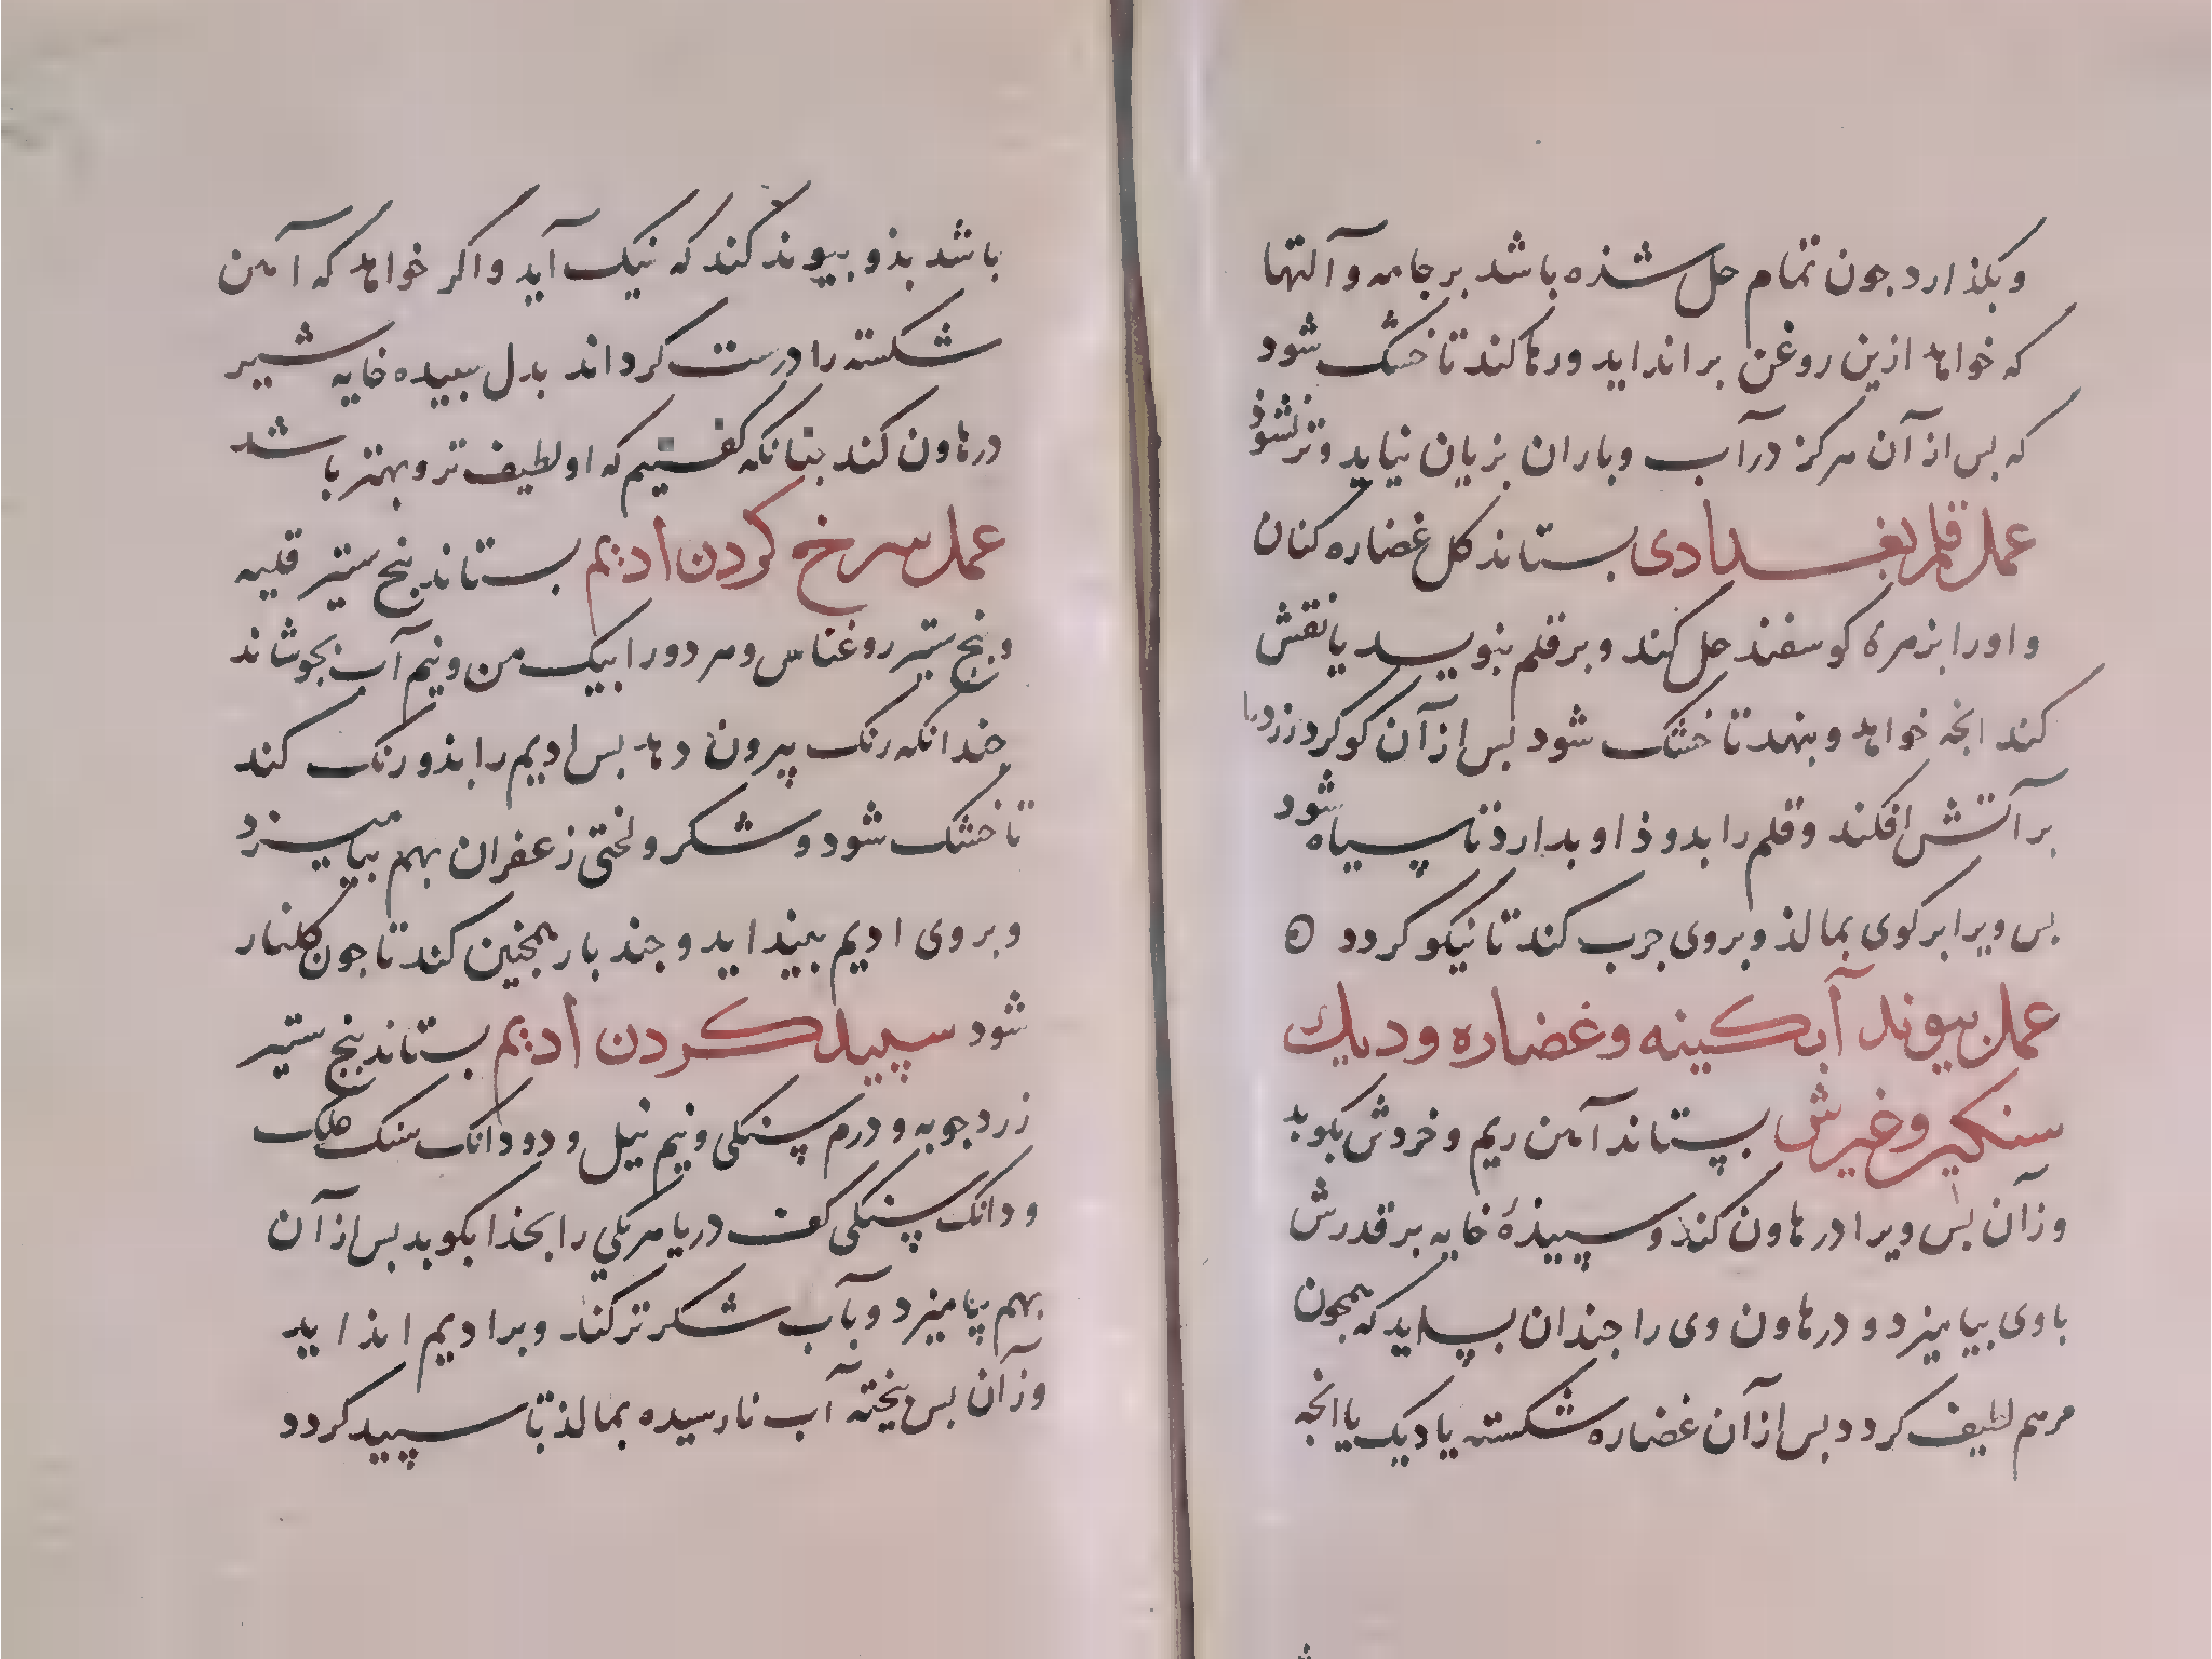 وبكذارد جون تمام حل شذه باشد بر جامه و آلتها
كه خواهد ازين روغن براندايد ورها كند تا خشك شود
كه بس از آن هركز در آب وباران بزيان نيايد وتر نشوذ
عمل قلم بغدادى بستاند كل غضاره كنان
واورا بزهرهٔ كوسفند حل كند وبر قلم بنويسد يا نقش
كند انجه خواهد وبنهد تا خشك شود بس از آن كوكرد زرد را
بر آتش افكند وقلم را بدوذ او بدارد تا سياه شود
بس ويرا بركوى بمالذ وبروى جرب كند تا نيكو كردد
عمل بيوند آبكينه وغضاره وديك
سنكين وغيرش بستاند آهن ريم وخردش بكوبد
وزآن بس ويرا درهاون كند وسپيذهٔ خايه بر قدرش
باوى بياميزد و درهاون وى را جندان بسايد كه همجون
مرهم لطيف كردد بس از آن غضاره شكسته يا ديك يا انجه
باشد بذو بيوند كند كه نيك آيد واكر خواهد كه آهن
شكسته را درست كرداند بدل سبيده خايه شير
درهاون كند جنانكه كفتيم كه او لطيف تر وبهتر باشد
عمل سرخ كردن اديم بستاند بنج ستير قليه
و بنج ستير روغناس وهر دو را بيك من ونيم آب بجوشاند
جندانكه رنك بيرون دهد بس اديم را بذو رنك كند
تا خشك شود وشكر ولختى زعفران بهم بياميزد
وبروى اديم بينداید وجند بار همجنين كند تا جون كلنار
شود سپيد كردن اديم بستاند بنج ستير
زردجوبه و درم سنكى ونيم نيل و دو دانك سنك هلك
ودانك سنكى كف دريا هر يكى را بخذا بكوبد بس از آن
بهم بياميزد وبآب شكر تر كند وبر اديم انذايد
وزآن بس بخته آب نارسيده بمالذ تا سپيد كردد